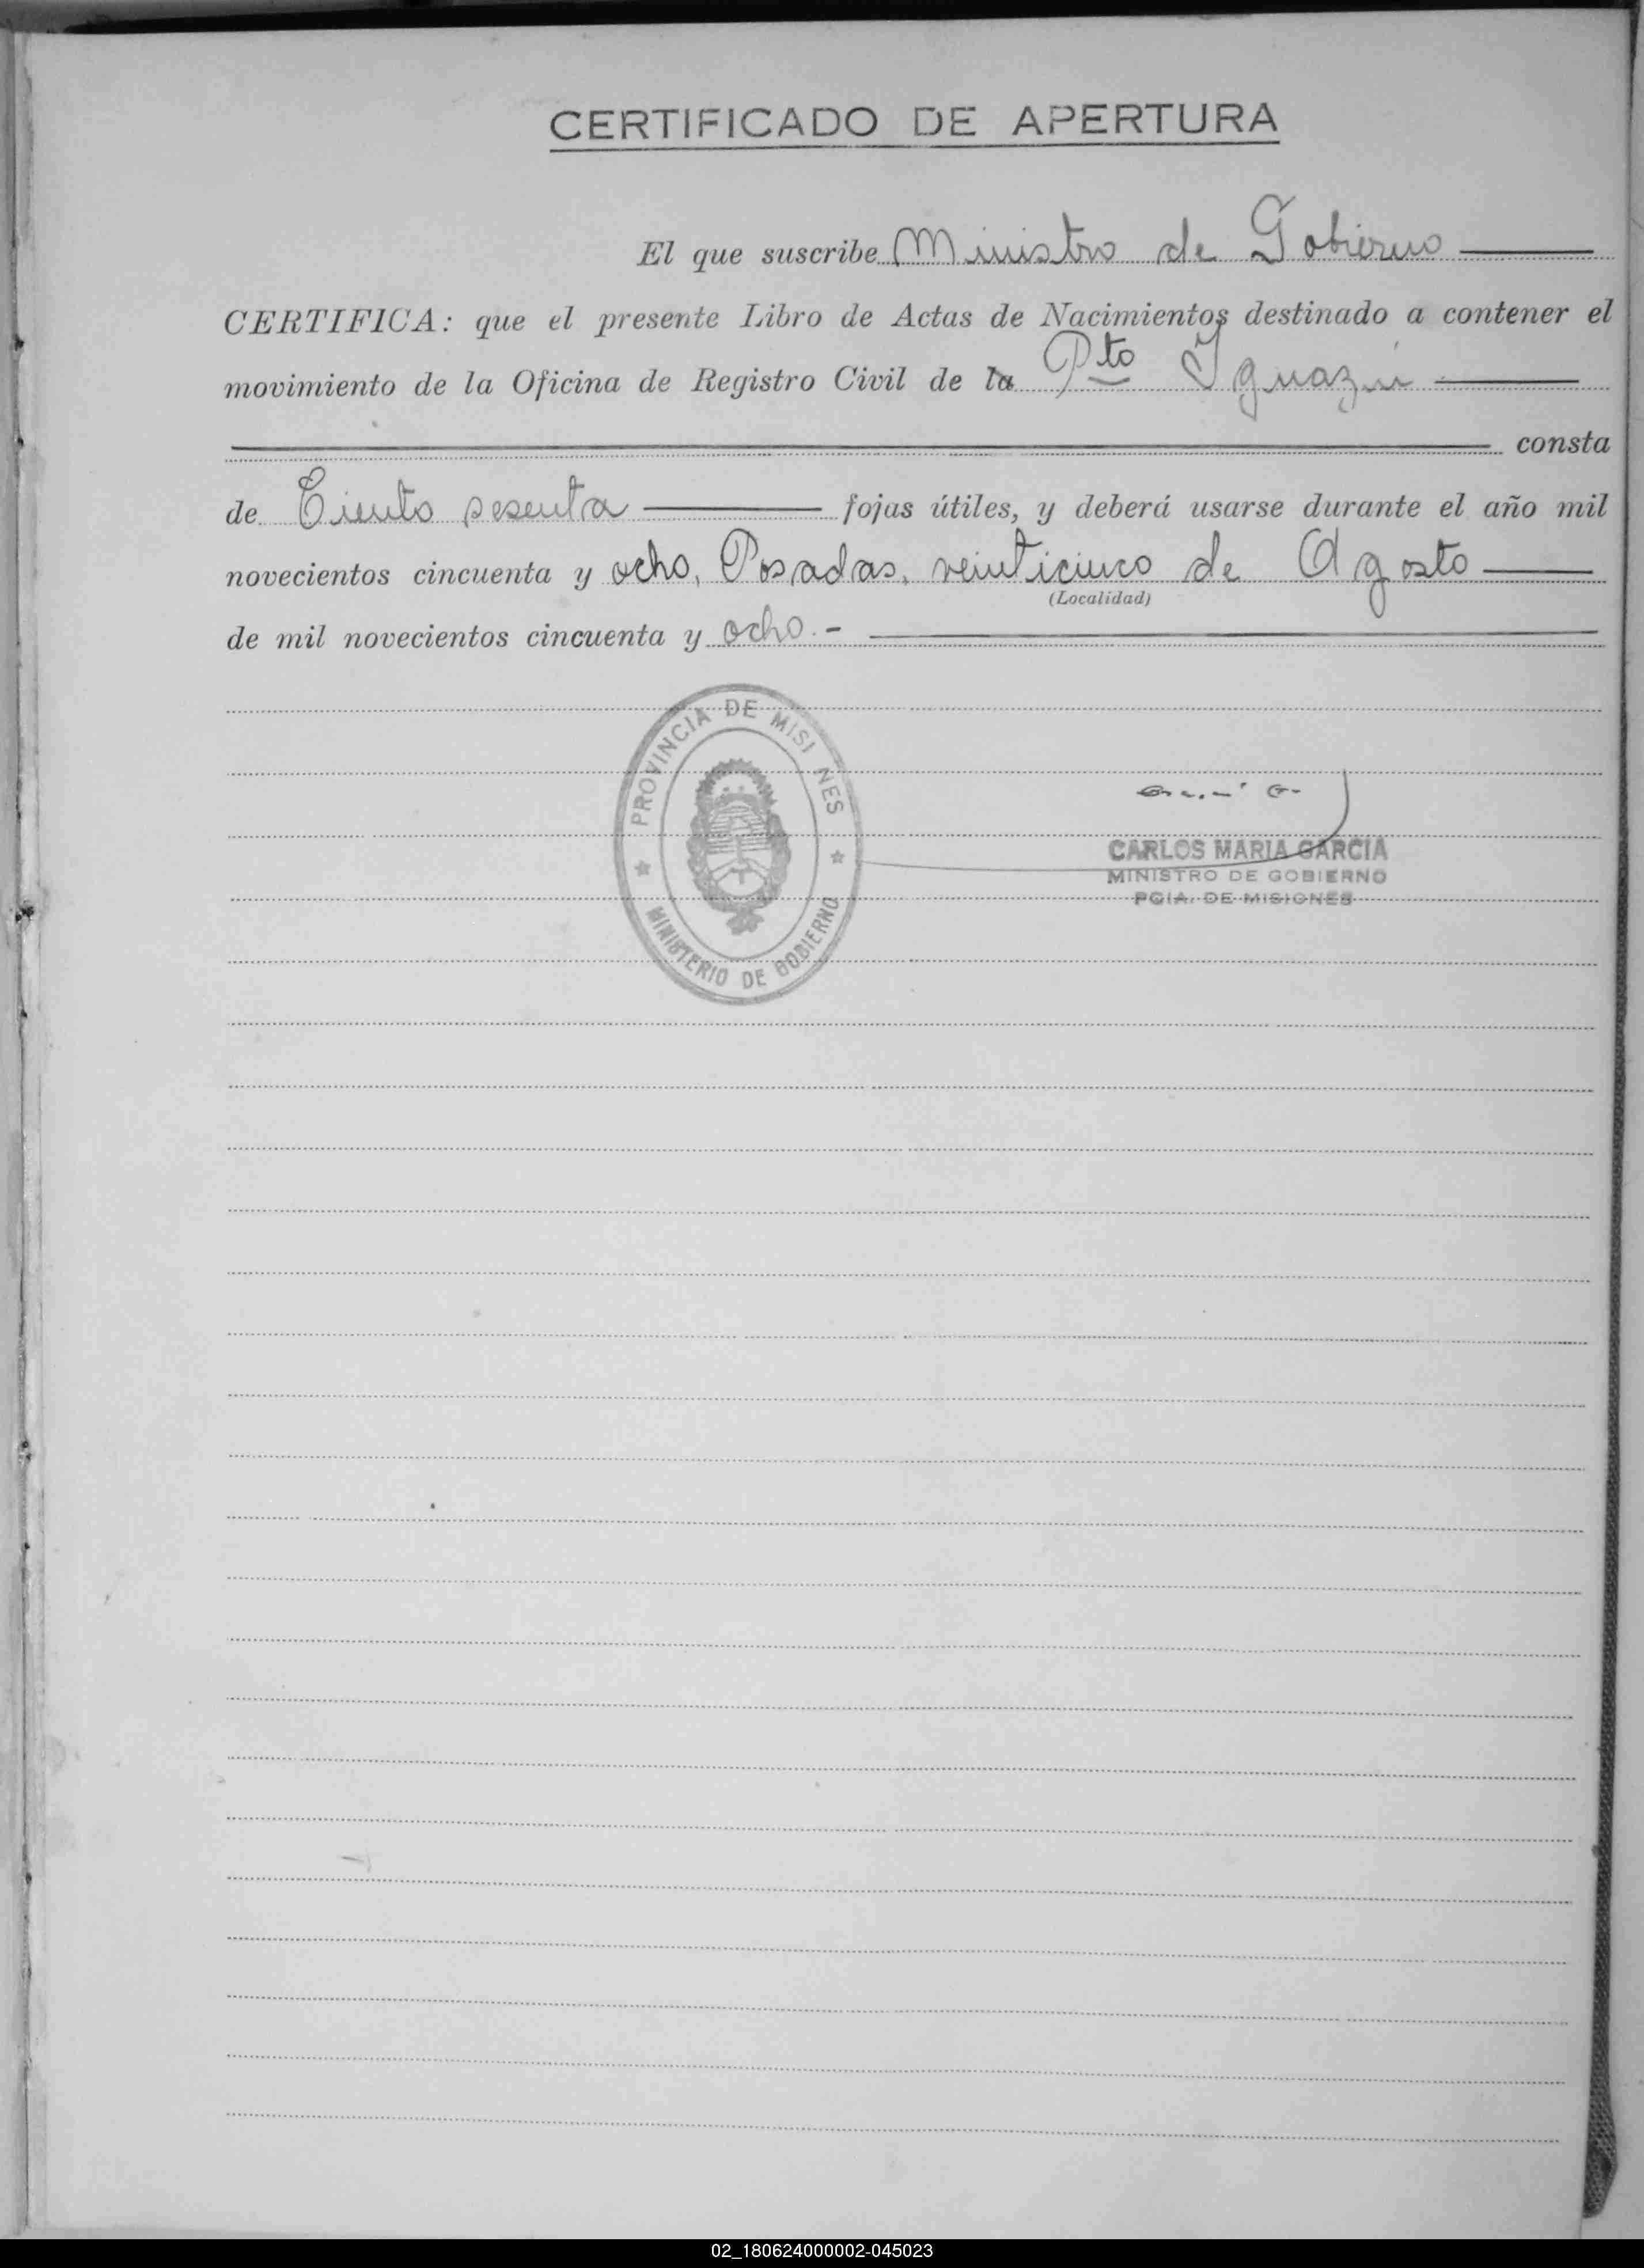 CERTIFICADO DE APERTURA
El que suscribe Ministro de Gobierno
CERTIFICA: que el presente Libro de Actas de Nacimientos destinado a contener el
movimiento de la Oficina de Registro Civil de la Pto Iguazú
consta
de Ciento sesenta fojas útiles, y deberá usarse durante el año mil
novecientos cincuenta y ocho, Posadas, veinticinco de Agosto
(Localidad)
de mil novecientos cincuenta y ocho.-
PROVINCIA DE MISI NES
MINISTERIO DE GOBIERNO
CARLOS MARIA GARCIA
MINISTRO DE GOBIERNO
PCIA. DE MISIONES
02_180624000002-045023